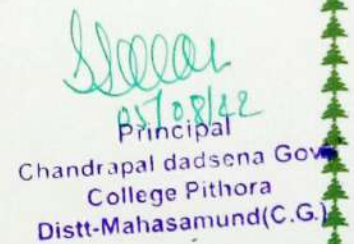 05/08/22
Principal
Chandrapal dadsena Gov
College Pithora
Distt-Mahasamund(C.G.)